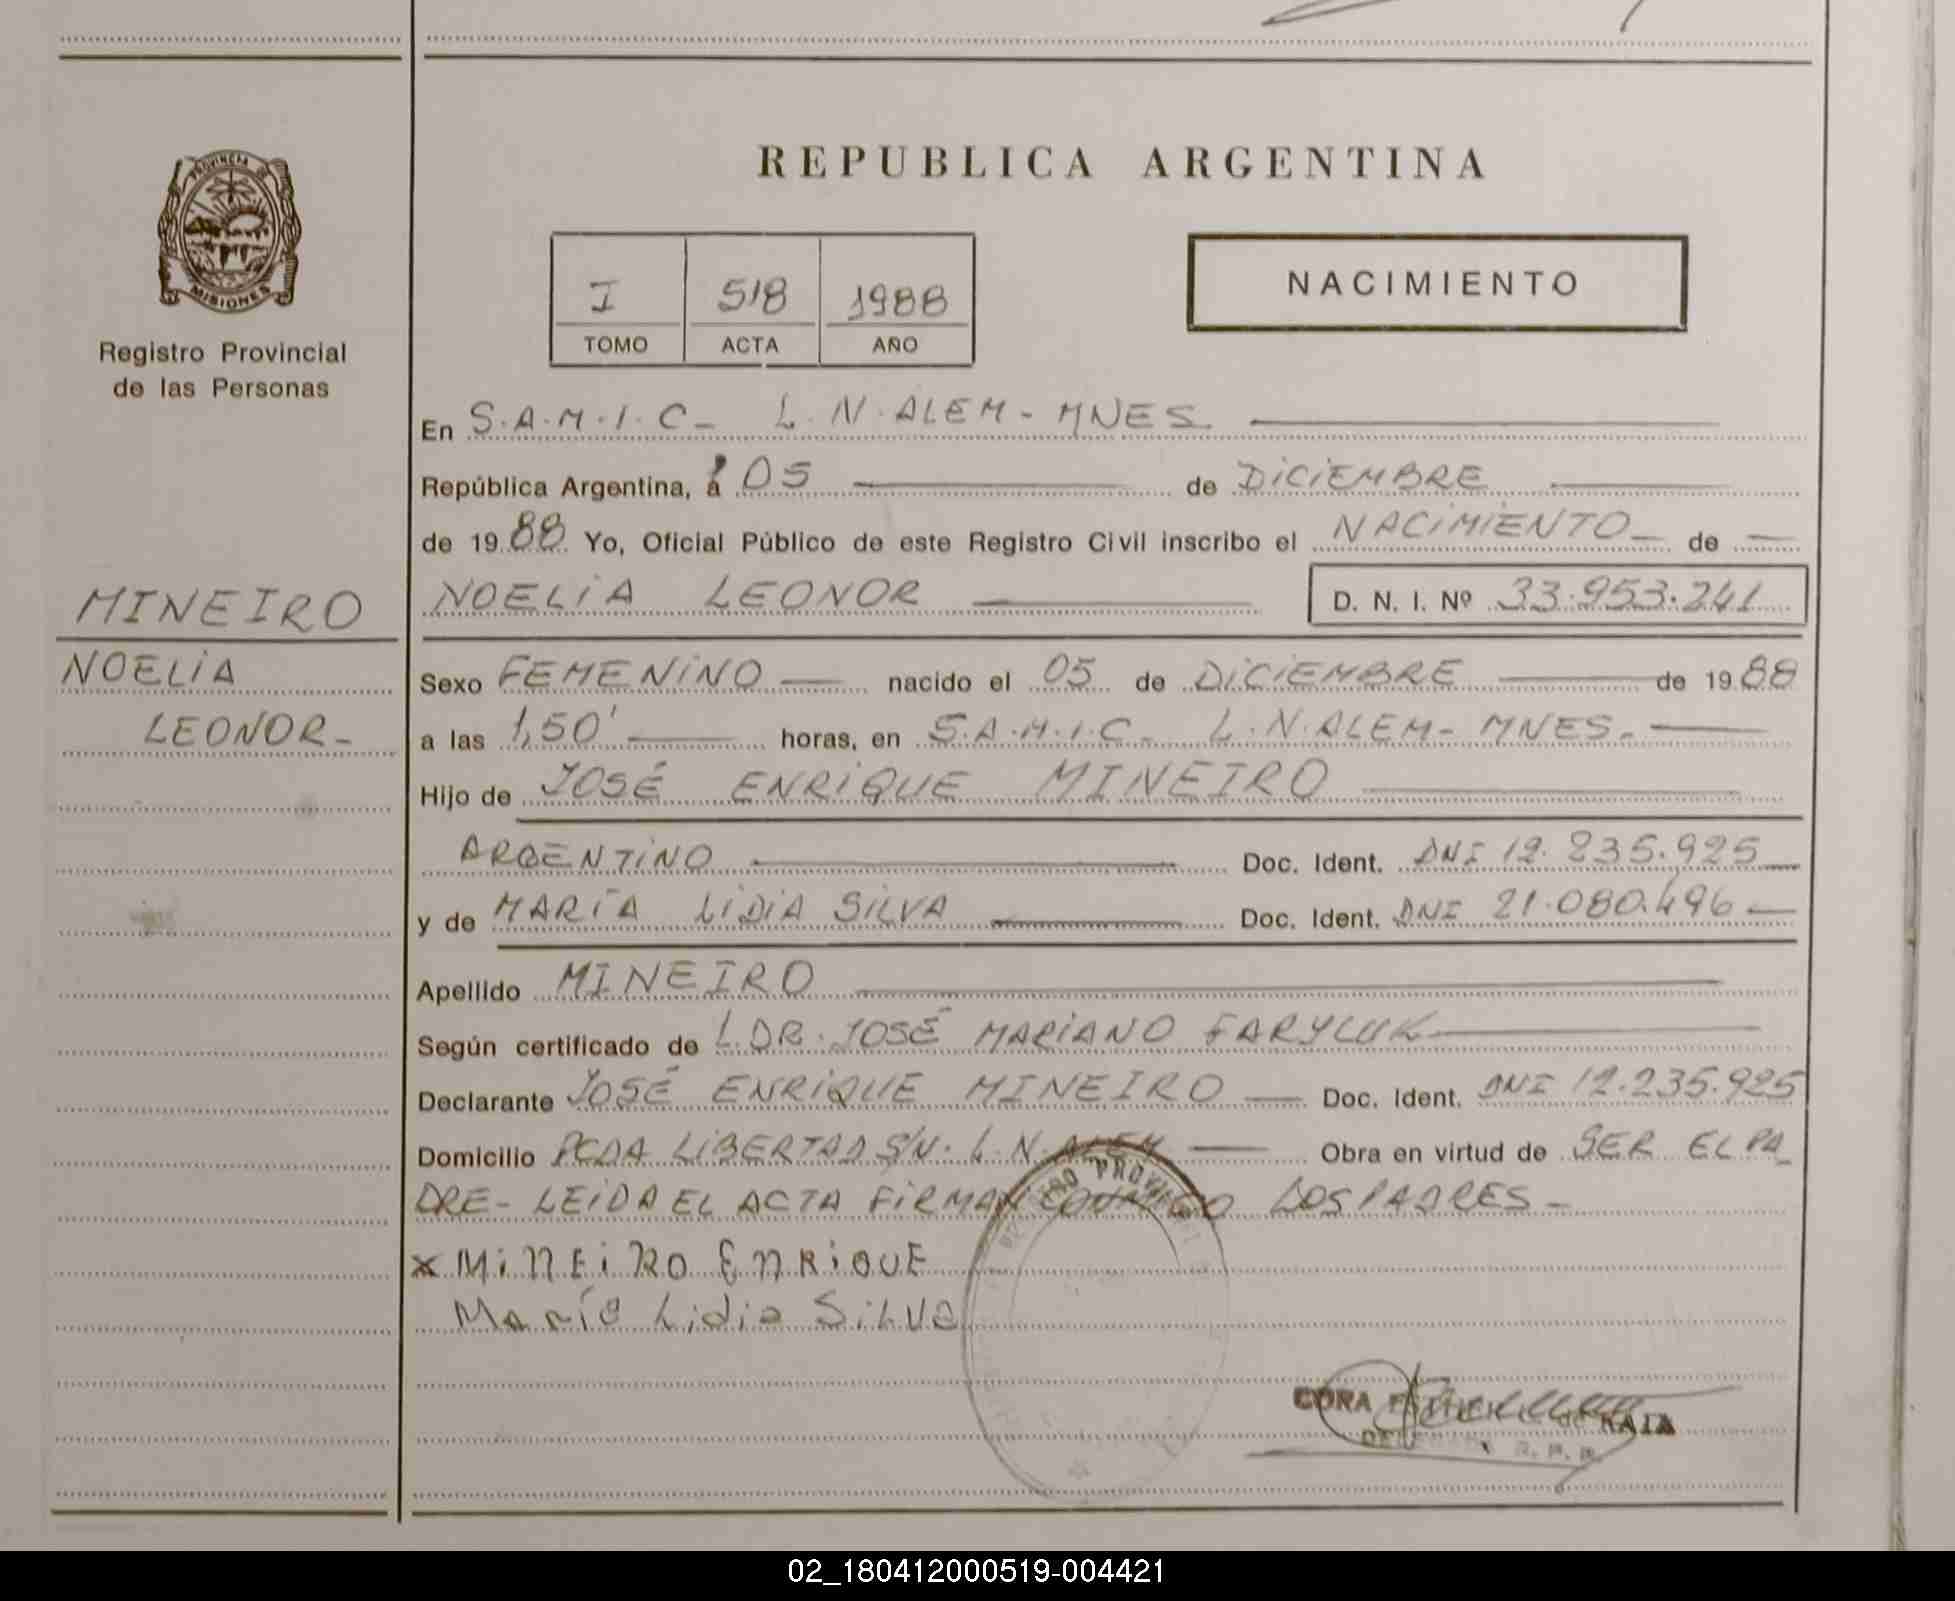 REPUBLICA ARGENTINA
PROVINCIA DE
MISIONES
Registro Provincial
de las Personas
I 518 1988
TOMO ACTA AÑO
NACIMIENTO
En S.A.M.I.C- L.N.ALEM-MNES
República Argentina, a 05 de DiCiEMBRE
de 1988 Yo, Oficial Público de este Registro Civil inscribo el NACiMiENTO- de
MINEIRO
NOELiA LEONOR D. N. I. Nº 33.953.241
NOELiA
LEONOR-
Sexo FEMENiNO nacido el 05 de DiCiEMBRE de 1988
a las 1,50' horas, en S.A.M.I.C- L.N.ALEM-MNES.-
Hijo de JOSÉ ENRiQUE MINEIRO
ARGENTiNO Doc. Ident. DNI 12.235.925
y de MARÍA LiDiA SiLVA Doc. Ident. DNI 21.080.496
Apellido MINEIRO
Según certificado de L.DR.JOSÉ MARiANO FARYLUK
Declarante JOSÉ ENRiQUE MINEIRO Doc. Ident. DNI 12.235.925
Domicilio PCDA LiBERTAD S/N. L.N.ALEM Obra en virtud de SER EL PA-
DRE- LEiDA EL ACTA FiRMAN CONMIGO LOS PADRES-
x MiNEiRO ENRiQUE
María Lidia SiLVa
CORA de RAIA
DELEGADA R.P.P.
02_180412000519-004421